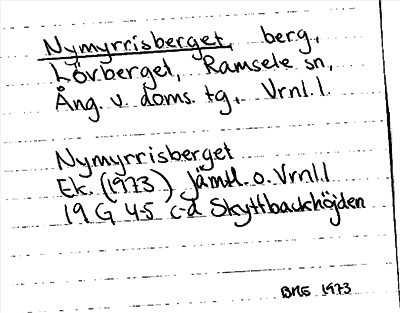 Nymyrrisberget, berg,
Lövberget, Ramsele sn,
Ång. v. doms. tg., Vrnl. l.
Nymyrrisberget
Ek. (1973) Jämtl. o. Vrnl. l
19 G 4-5 c-d Skyttbackhöjden
BME 1973